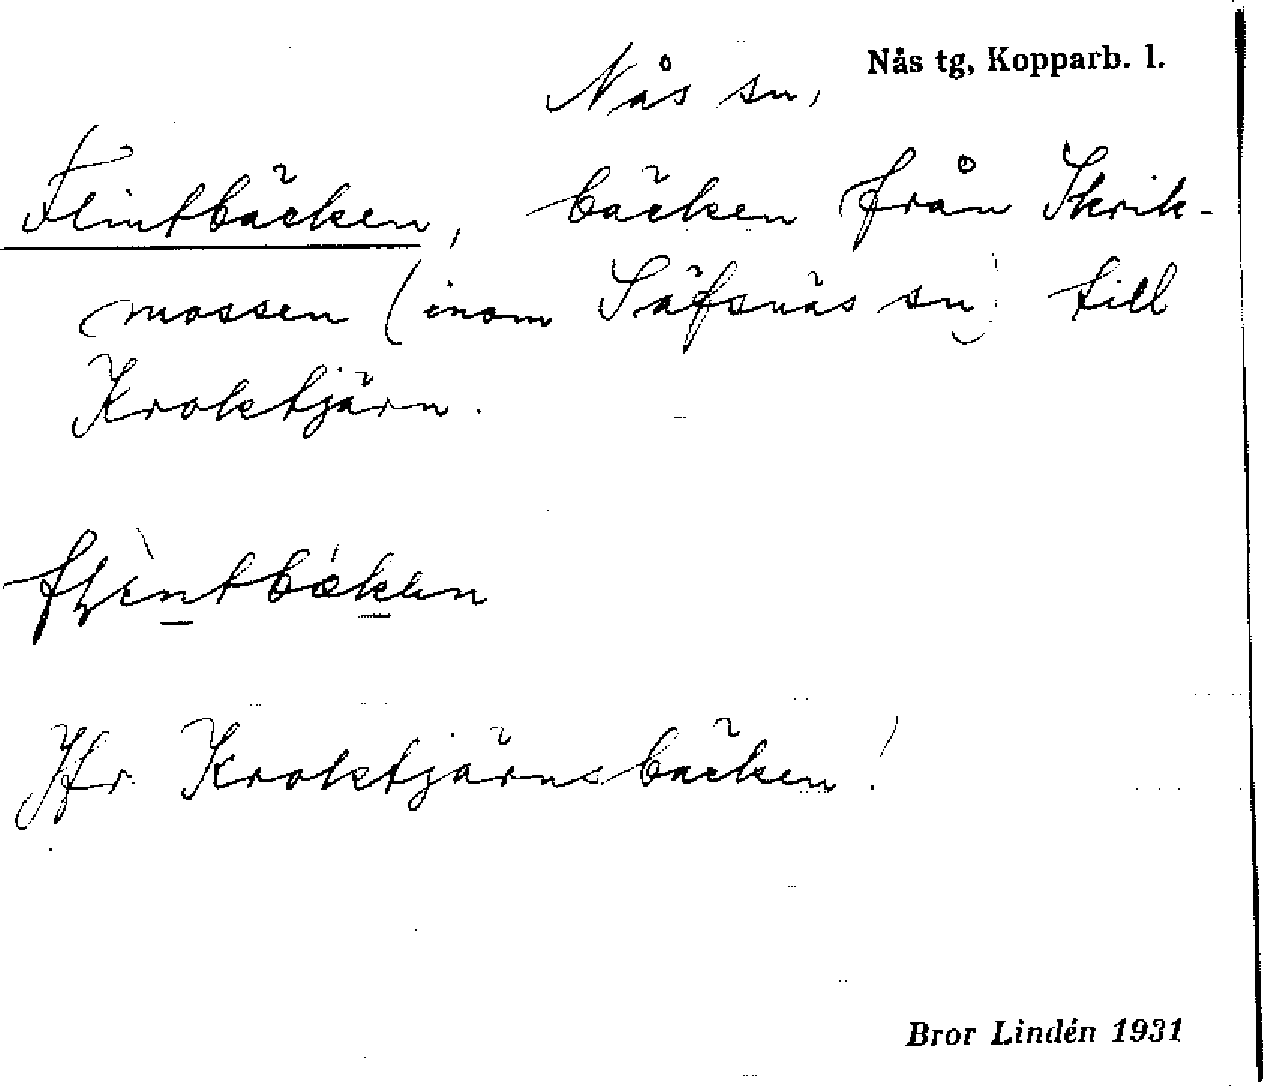 Nås tg, Kopparb. l.
Nås sn,
Flintbäcken, bäcken från Skrik-
mossen (inom Säfsnäs sn) till
Kroktjärn.
Jfr Kroktjärnsbäcken!
Bror Lindén 1931